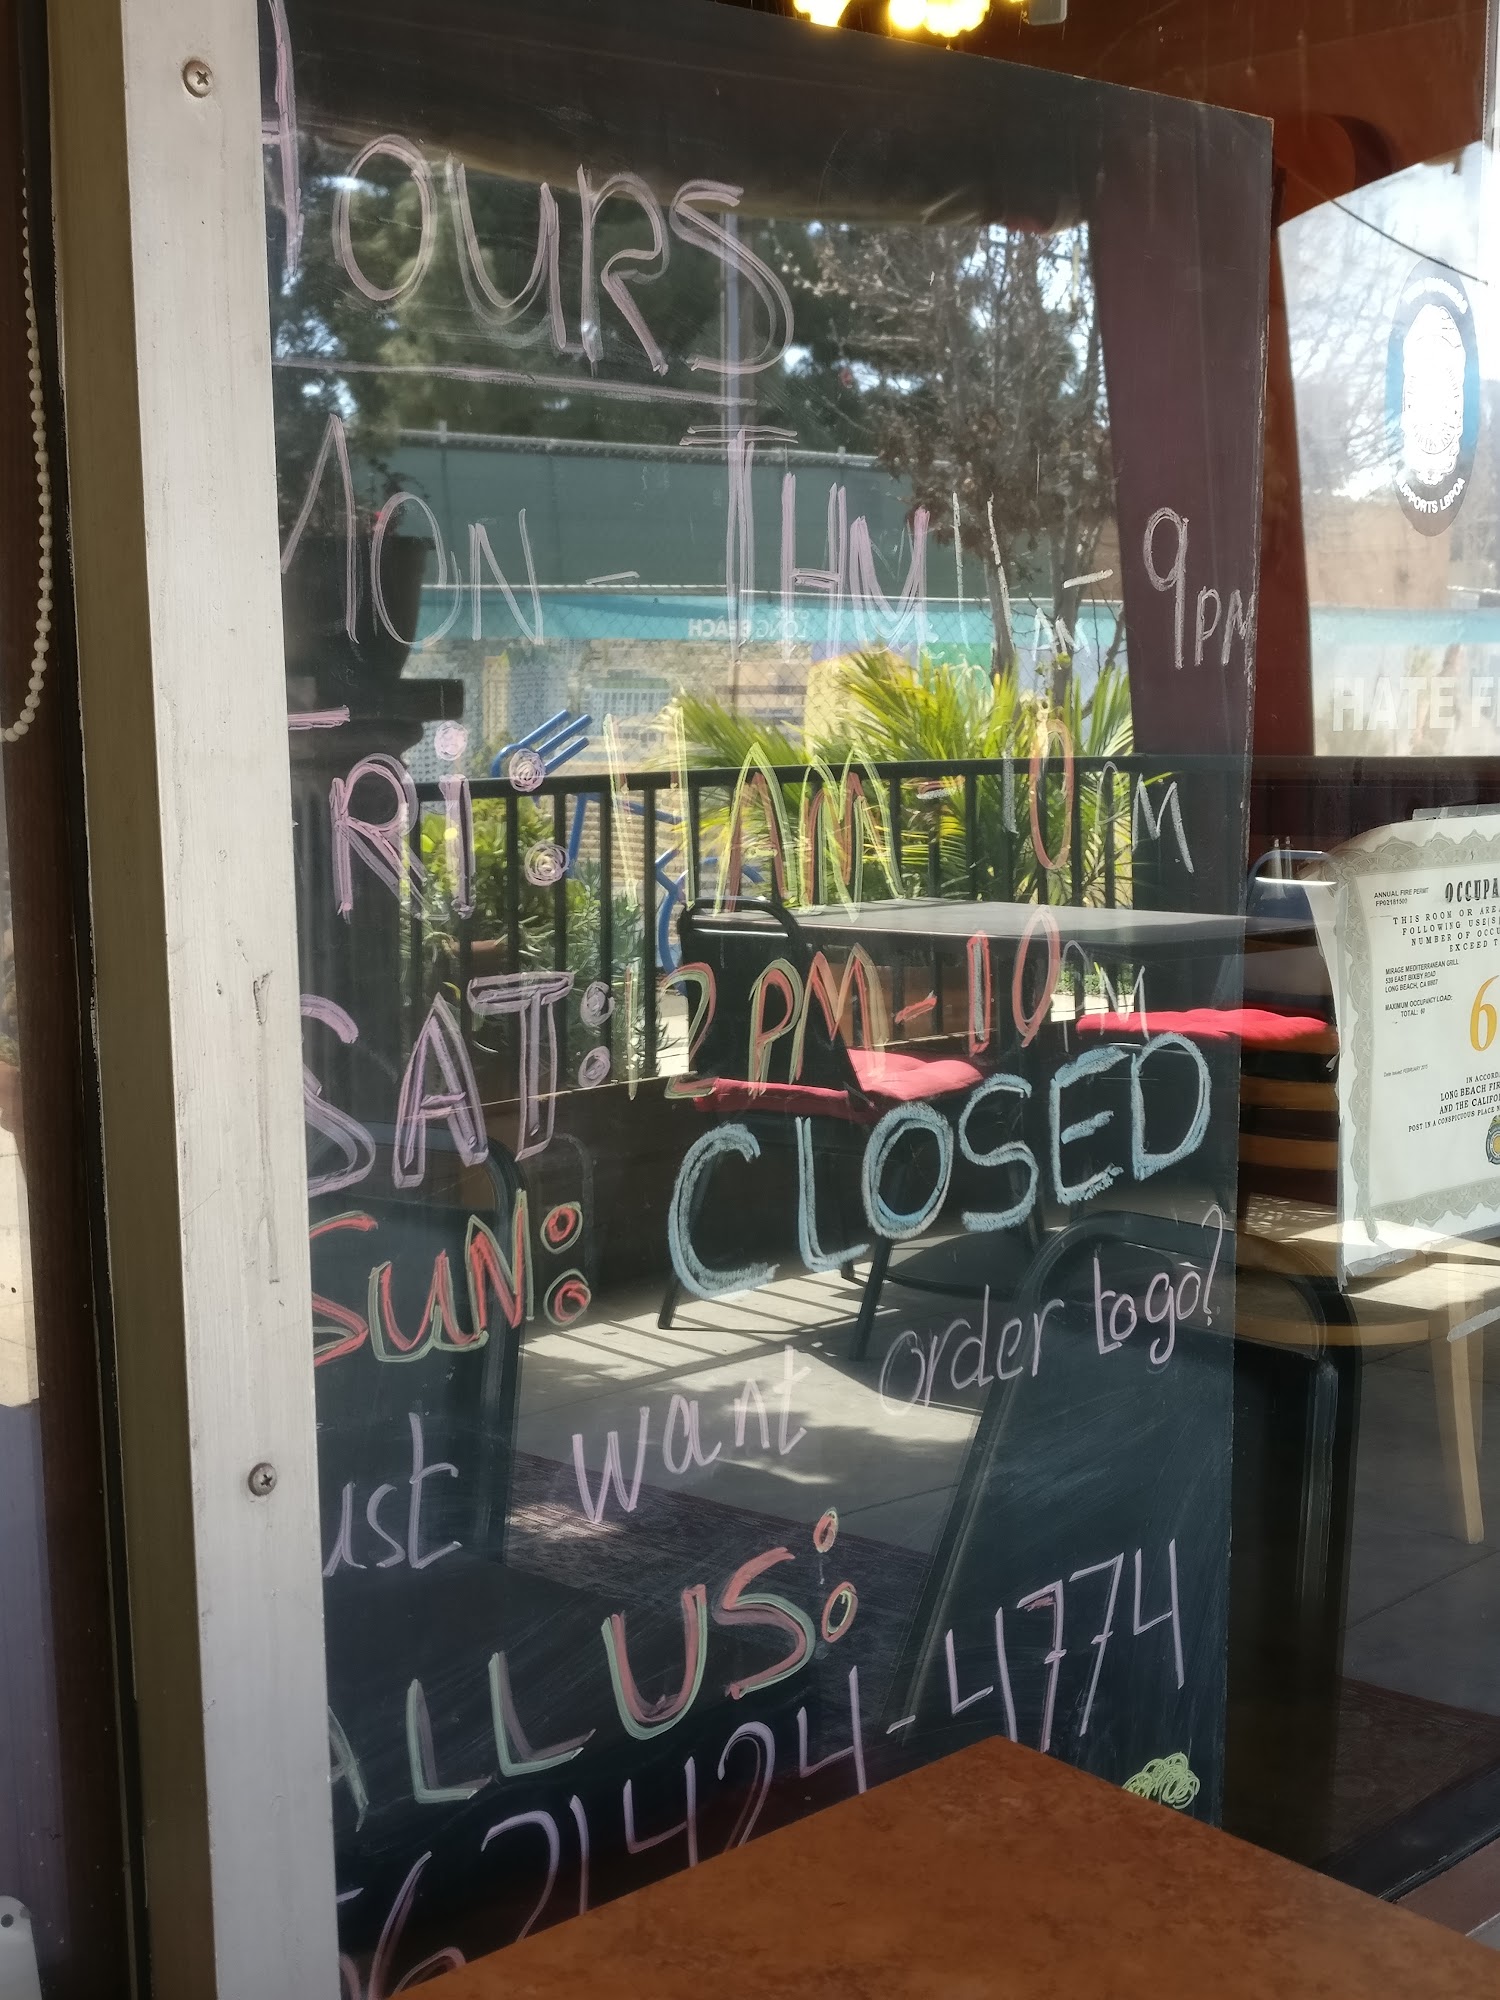 HOURS
MON - THU 11 AM - 9PM
FRI: 11AM - 10 PM
SAT: 12PM - 10PM
SUN: CLOSED
ust want order to go?
ALL US:
562 424-4774
LONG BEACH
UPPORTS LBPOA
HATE F
ANNUAL FIRE PERMIT
FP02181500
OCCUPA
THIS ROOM OR AREA
FOLLOWING USE(S
NUMBER OF OCCU
EXCEED T
MIRAGE MEDITERRANEAN GRILL
539 EAST BIXBY ROAD
LONG BEACH, CA 90807
MAXIMUM OCCUPANCY LOAD:
TOTAL: 60
6
IN ACCORDA
LONG BEACH FIR
AND THE CALIFO
POST IN A CONSPICUOUS PLACE